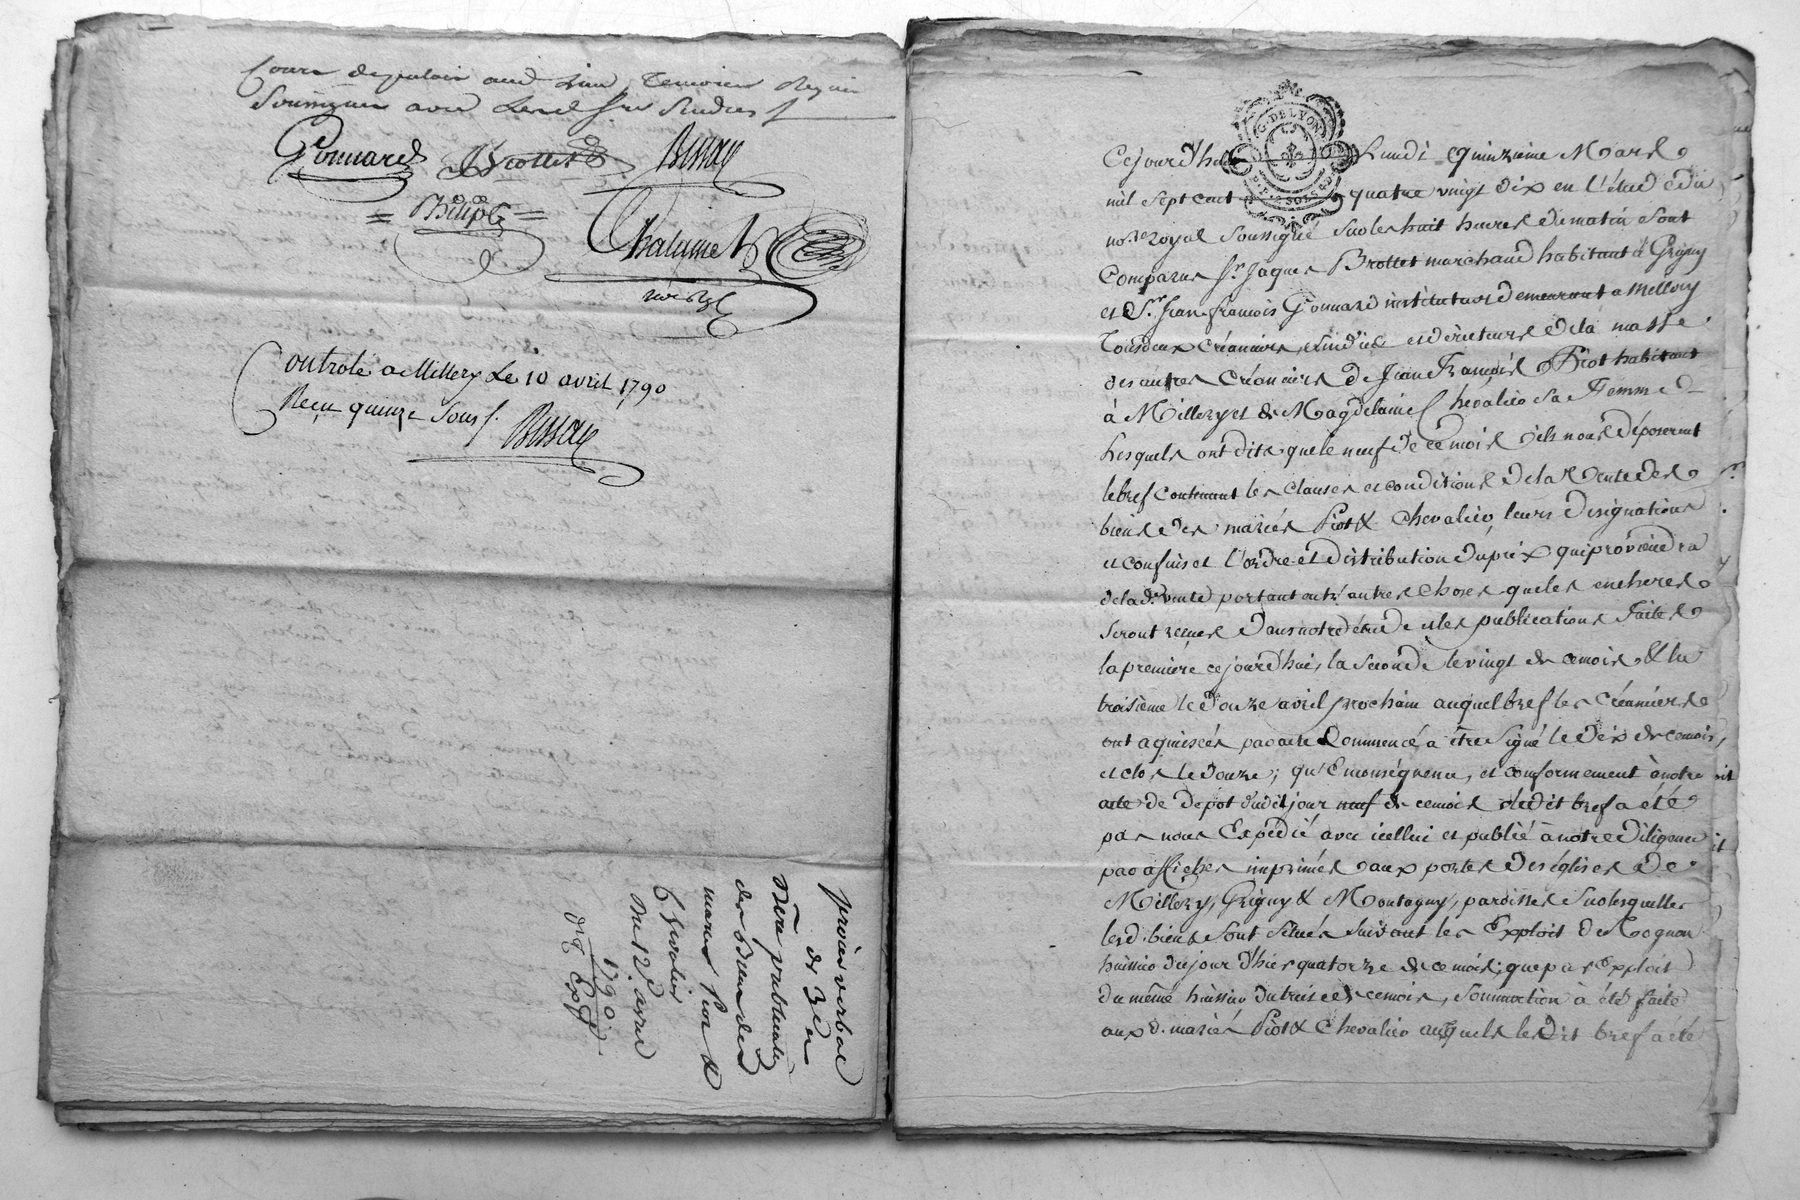 Soussignés avec
Gonnard Brottet Bissac
Chalumet
Controlé a Millery Le 10 avril 1790
Reçu quinze sous /. Bissac
procès verbal
de 3e et
der.e publication
des biens des
mariés Piot &
Chevalier
du 12 avril
1790.
G. DE LYON
2 SOLS
Cejourd'hui Lundi quinzieme Mars
mil sept cent quatre vingt dix en L'étude du
no.re Royal Soussigné sur les huit heures du matin sont
Comparus Sr. Jaques Brottet marchand habitant à Grigny
et Sr. Jean françois Gonnard instituteur demeurant a Millery
Tous deux créanciers, sindics et directeurs de la masse
des autres Créanciers de Jean François Piot habitant
à Millery et de Magdelaine Chevalier sa Femme
Lesquels ont dit que le neuf de ce mois ils nous déposerent
le bref contenant les clauses et conditions de la Vente des
biens des mariés Piot & Chevalier, leurs designations
et confins et L'ordre et distribution du prix qui proviendra
de lad.e vente portant entre autres choses que les encheres
seront reçues dans notre étude et les publications faites
la premiere cejourd'hui, la seconde le vingt de ce mois & la
troisième le douze avril prochain auquel bref les Créanciers
ont aquiescés par acte commencé a être signé le dix de ce mois,
et clos le douze; qu'en conséquence, et conformement à notre
acte de depot dudit jour neuf de ce mois ledit bref a été
par nous Expédié avec icellui et publié à notre diligence
par affiches imprimés aux portes des églises de
Millery, Grigny & Montagny, paroisses sur lesquelles
lesd. biens sont situés suivant les Exploit de Rognon
huissier du jour d'hier quatorze de ce mois; que par Exploit
du même huissier du treize de ce mois, sommation à été faite
aux d. mariés Piot & Chevalier auxquels ledit bref a été